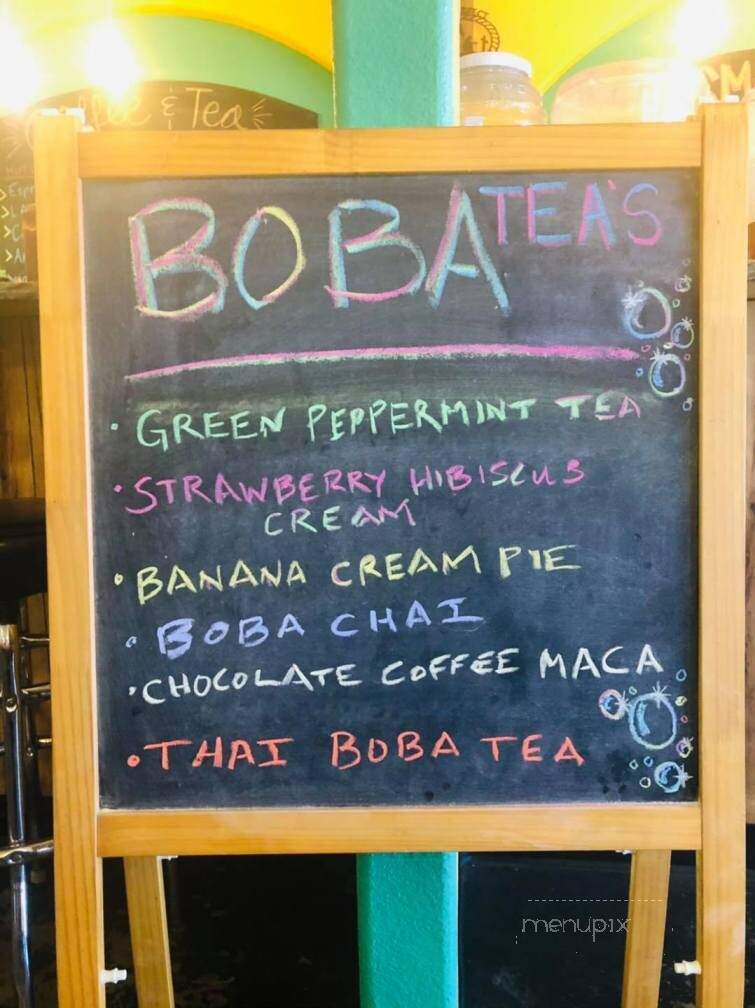 Coffee & Tea
BOBA TEA'S
· GREEN PEPPERMINT TEA
· STRAWBERRY HIBISCUS
CREAM
· BANANA CREAM PIE
· BOBA CHAI
· CHOCOLATE COFFEE MACA
· THAI BOBA TEA
menupix